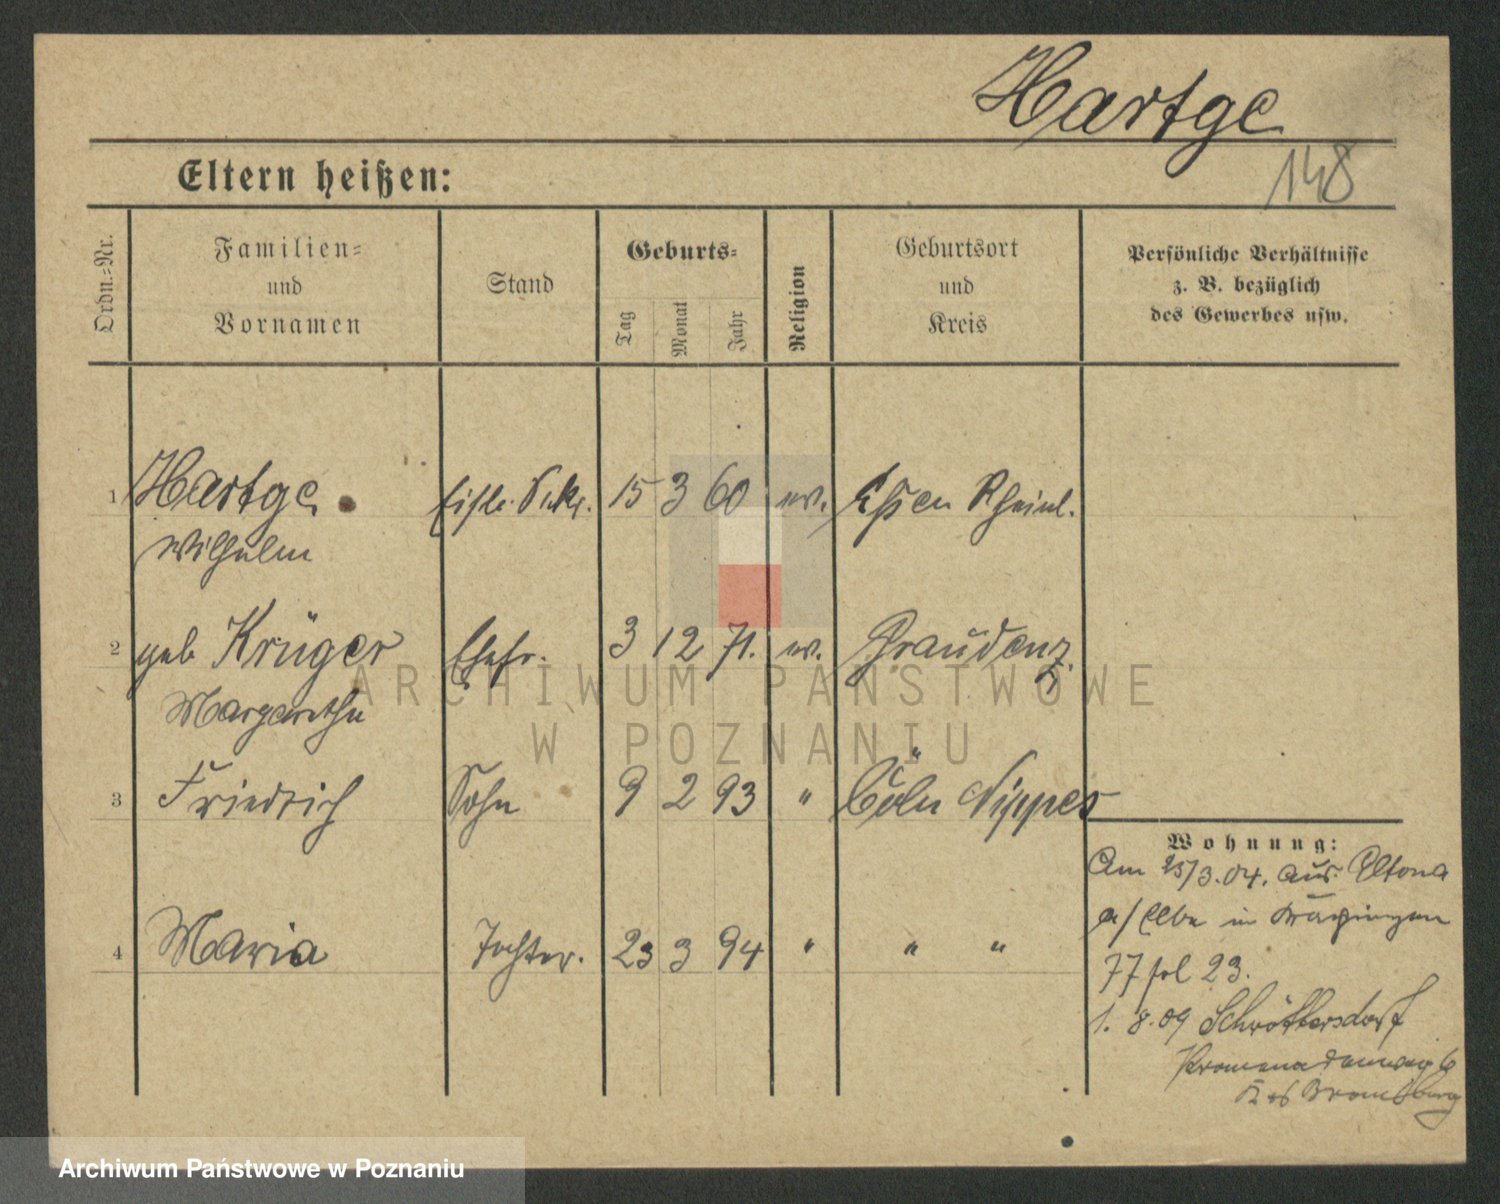 Hartge
148
Eltern heißen:
Ordn.-Nr.
Familien-
und
Vornamen
Stand
Geburts-
Tag
Monat
Jahr
Religion
Geburtsort
und
Kreis
Persönliche Verhältnisse
z. B. bezüglich
des Gewerbes usw.
1 Hartge Eisb. Sekr. 15 3 60 ev. Essen Rheinl.
Wilhelm
2 geb Krüger Ehefr. 3 12 71. ev. Graudenz.
Margarethe
3 Friedrich Sohn 9 2 93 " Cöln Nippes
4 Maria Tochter. 23 3 94 " " "
Wohnung:
Am 25/3.04. aus Altona
a/Elbe in
77 fol 23.
1. 8. 09 Schröttersdorf
Promenadenweg 6
Bromberg
ARCHIWUM PAŃSTWOWE
W POZNANIU
Archiwum Państwowe w Poznaniu